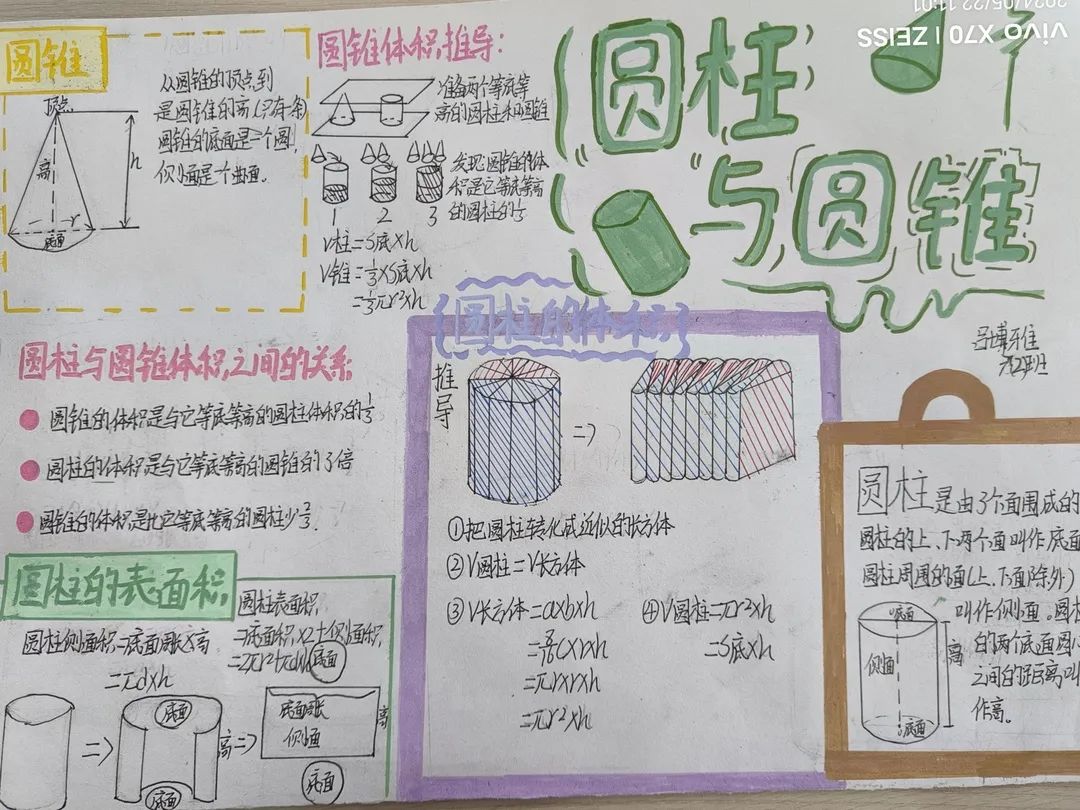 圆柱
与圆锥
vivo X70 | ZEISS
2024/05/22 11:01
圆锥
顶点
高
h
r
底面
从圆锥的顶点到
是圆锥的高(只有一条)
圆锥的底面是一个圆,
侧面是个曲面。
圆锥体积推导:
准备两个等底等
高的圆柱和圆锥
1 2 3
发现:圆锥的体
积是它等底等高
的圆柱的1/3
V柱=S底×h
V锥=1/3×S底×h
=1/3πr²×h
圆柱与圆锥体积之间的关系
圆锥的体积是与它等底等高的圆柱体积的1/3
圆柱的体积是与它等底等高的圆锥的3倍
圆锥的体积是比它等底等高的圆柱少2/3.
圆柱的体积
推导
=>
①把圆柱转化成近似的长方体
②V圆柱=V长方体
③V长方体=a×b×h
×r×h
=πr×r×h
=πr²×h
④V圆柱=πr²×h
=S底×h
圆柱的表面积
圆柱侧面积=底面周长×高
=πd×h
圆柱表面积
=底面积×2+侧面积
=2πr²+πdh
=>
底面
底面
高
=>
底面
底面周长
侧面
高
底面
圆柱是由3个面围成的
圆柱的上、下两个面叫作底面
圆柱周围的面(上、下面除外)
叫作侧面。圆柱
的两个底面圆心
之间的距离叫
作高。
底面
侧面
高
底面